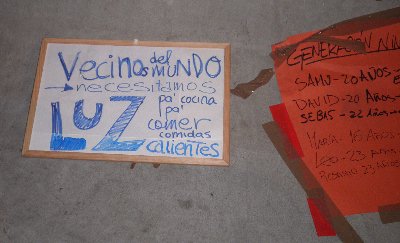 Vecinos del MUNDO
→ necesitamos
LUZ pa' cocina
pa'
comer
comidas
calientes
GENERACIÓN
SAMU - 20 AÑOS
DAVID - 20 AÑOS
SEBAS - 22 AÑOS
MARÍA - 16 AÑOS
LEO - 23 AÑOS
23 AÑOS